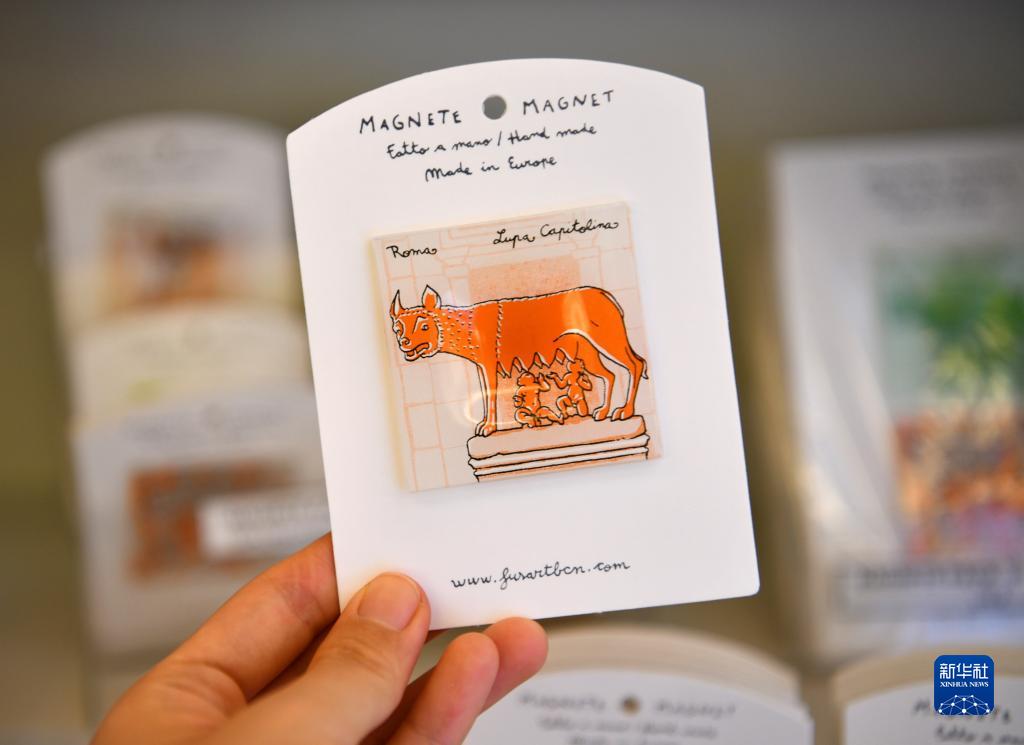 MAGNETE MAGNET
Fatto a mano / Hand made
Made in Europe
Roma Lupa Capitolina
www.fusartbcn.com
新华社
XINHUA NEWS